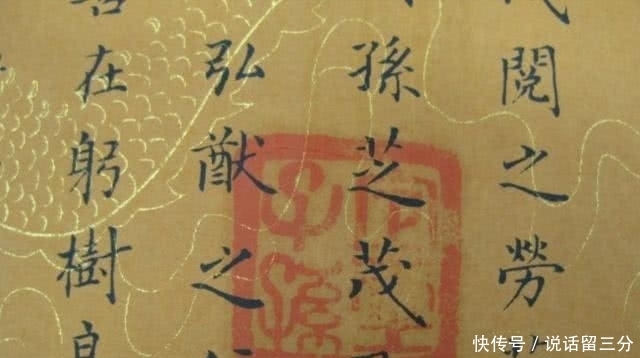 閱之勞
孫芝茂
弘猷之
在躬樹
子孫
快传号 / 说话留三分